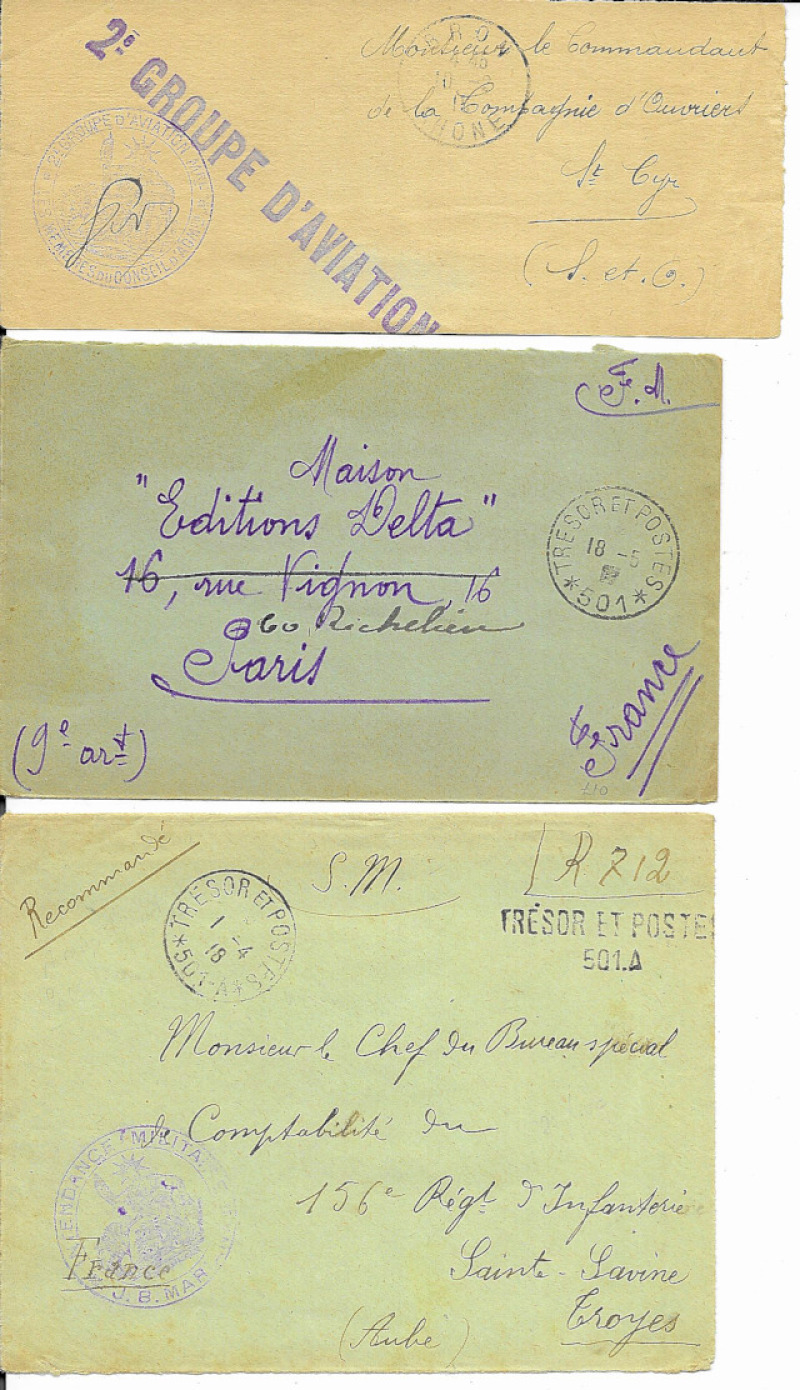 2e GROUPE D'AVIATION
Monsieur le Commandant
de la Compagnie d'Ouvriers
St Cyr
(S. et. O.)
BRON
10
RHONE
2e GROUPE D'AVIATION
LES MEMBRES DU CONSEIL D'ADM
F. M.
Maison
"Editions Delta"
16, rue Vignon, 16
60 Richelieu
Paris
(9e art)
France
TRESOR ET POSTES
18 -5
*501*
Recommandé
S. M.
R 712
TRÉSOR ET POSTES
501.A
TRESOR ET POSTES
1 -4
18
*501-A*
Monsieur le Chef du Bureau spécial
de Comptabilité du
156e Régt d'Infanterie
Sainte-Savine
Troyes
(Aube)
France
ENDANCE MILITA
J. B. MAR